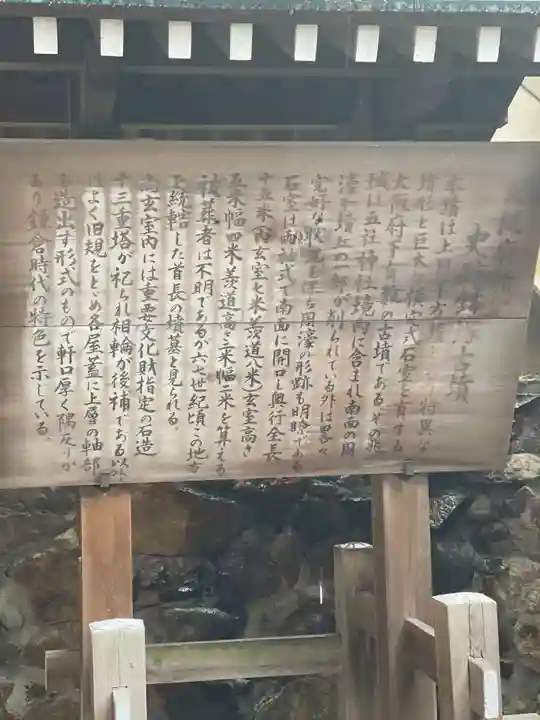 史 古墳
本墳は上 方 特異な
墳形と巨大 横穴式石室を有する
大阪府下 の古墳である。その兆
域は五社神社境内に含まれ南面の周
濠と墳丘の一部が削られている外は略々
完好な状況を保ち周濠の形跡も明瞭である
石室は両袖式で南面に開口し奥行全長
十五米内玄室七米羨道八米玄室高さ
五米幅四米羨道高さ二米幅二米を算える
被葬者は不明であるが六七世紀頃この地方
を統轄した首長の墳墓と見られる。
尚玄室内には重要文化財指定の石造
十三重塔が祀られ相輪が後補である以外
はよく旧規をとどめ各屋蓋に上層の軸部
を造出す形式のもので軒口厚く隅反りが
あり鎌倉時代の特色を示している。